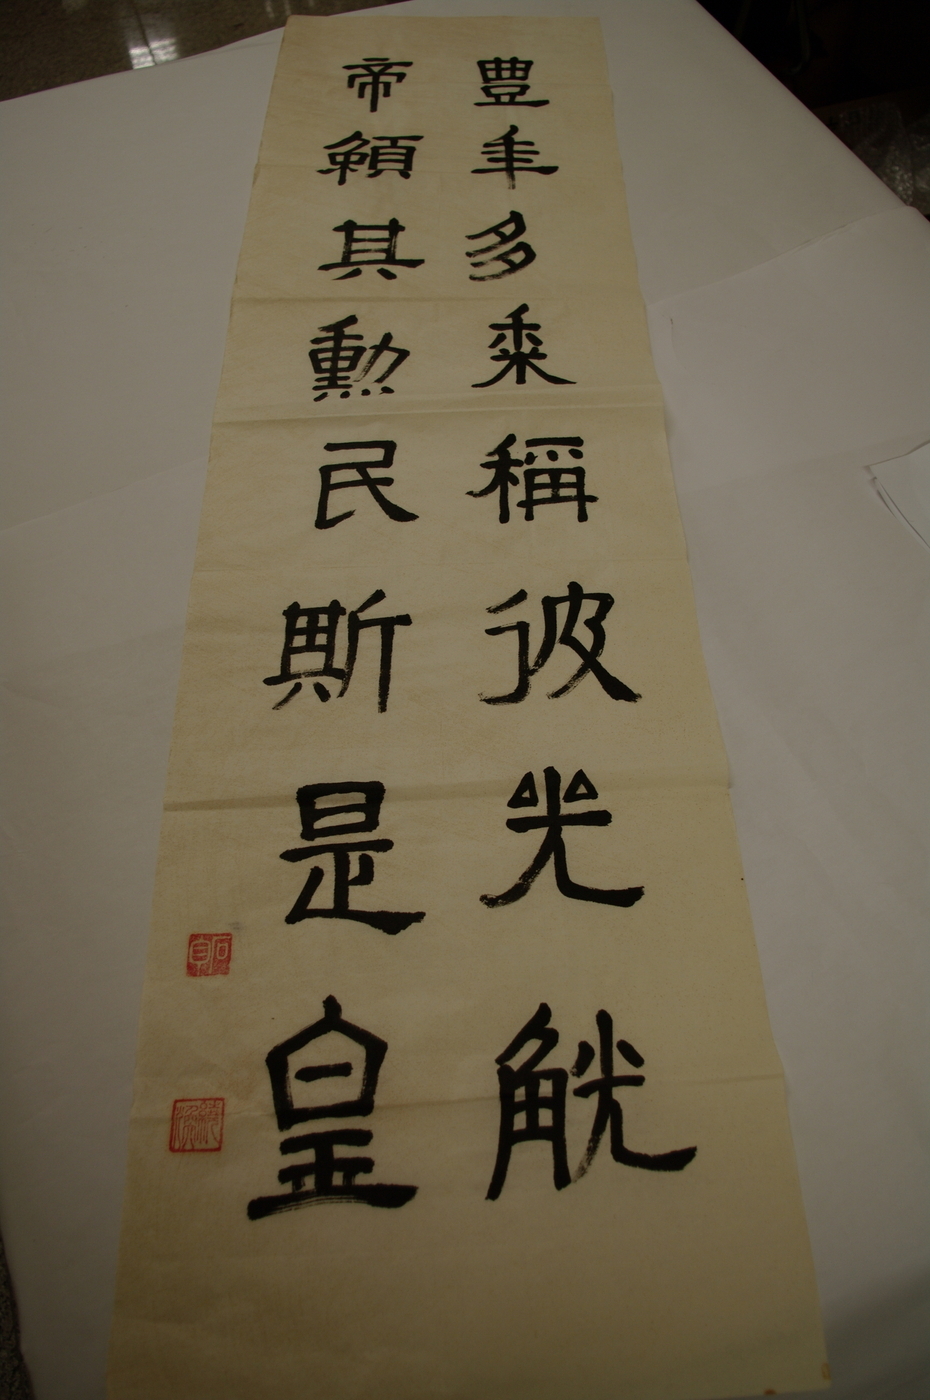 豐年多黍稱彼兕觥
帝賴其勳民斯是皇